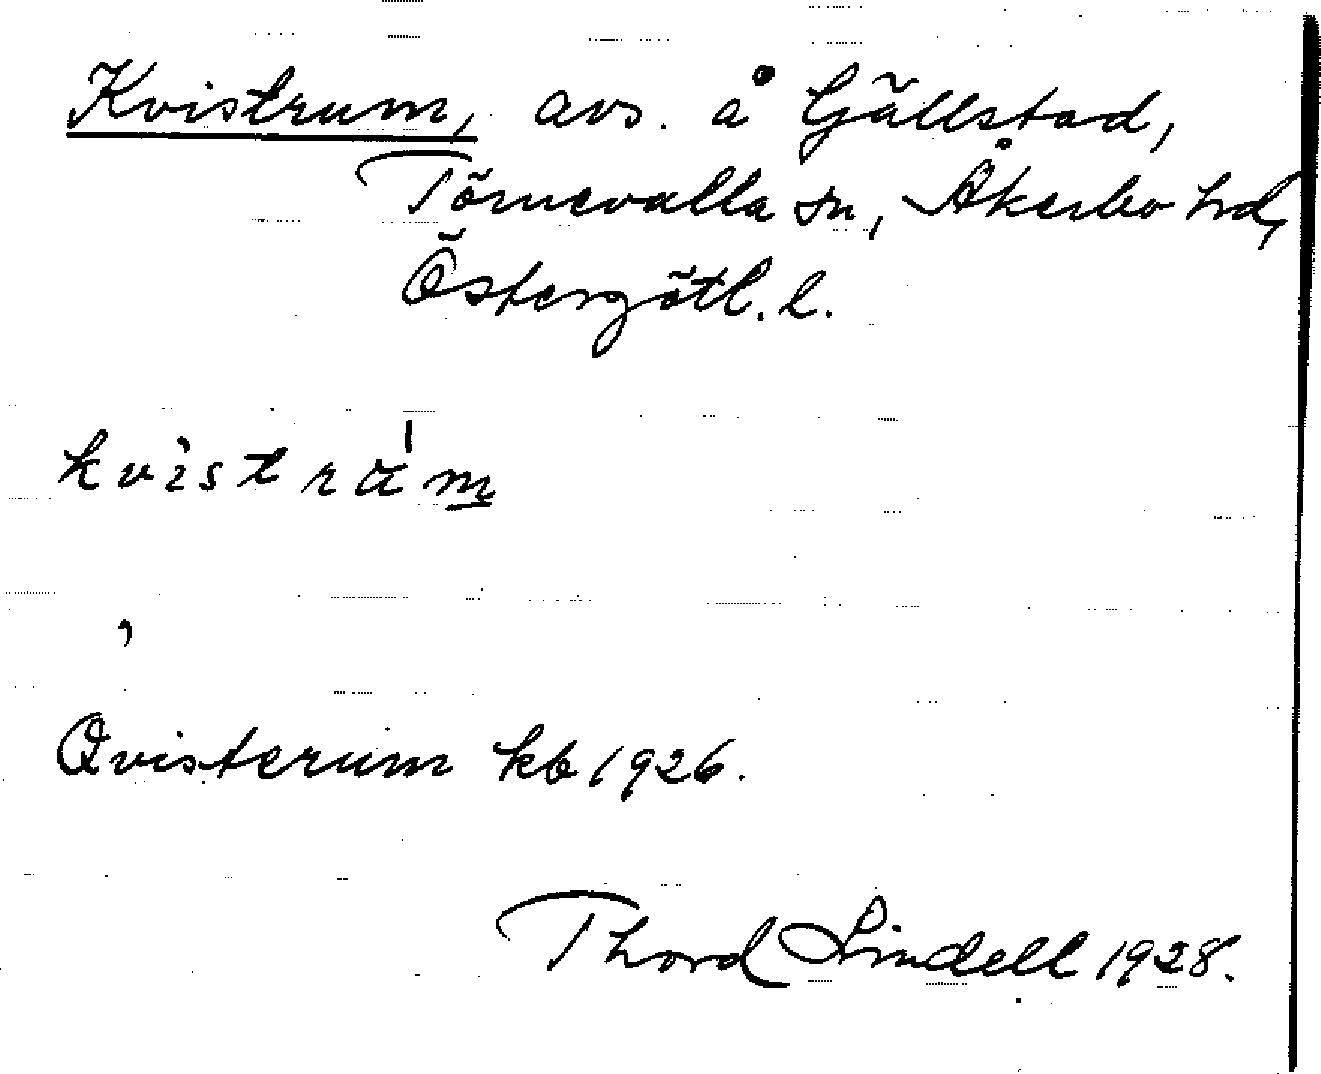 Kvistrum, avs. å Gällstad,
Törnevalla sn, Åkerbo hd,
Östergötl. l.
Qvisterum kb 1926.
Thord Lindell 1928.